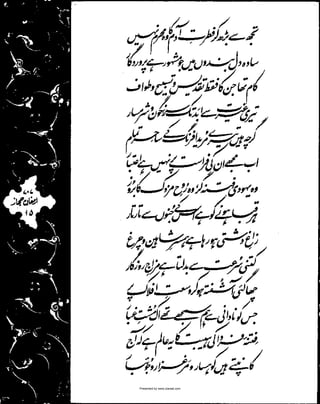 تجھ سے بڑھ کر فطرتِ آدم کا وہ محرم نہیں
سادہ دل بندوں میں جو مشہور ہے پروردگار
کام تھا جن کا فقط تقدیس و تسبیح و طواف
تیری غیرت سے ابد تک سرنگون و شرمسار
گرچہ ہیں تیرے مرید افرنگ کے ساحر تمام
اب مجھے ان کی فراست پر نہیں ہے اعتبار
وہ یہودی فتنہ گر وہ روحِ مزدک کا بروز
ہر قبا ہونے کو ہے اس کے جنوں سے تار تار
زاغِ دشتی ہو رہا ہے ہمسرِ شاہین و چرغ
کتنی سرعت سے بدلتا ہے مزاجِ روزگار
چھا گئی آشفتہ ہو کر وسعتِ افلاک پر
جس کو نادانی سے ہم سمجھے تھے اک مشتِ غبار
فتنۂ فردا کی ہیبت کا یہ عالم ہے کہ آج
کانپتے ہیں کوہسار و مرغزار و جوئبار
۷۰۷
ارمغان حجاز
۱۵
Presented by www.ziaraat.com